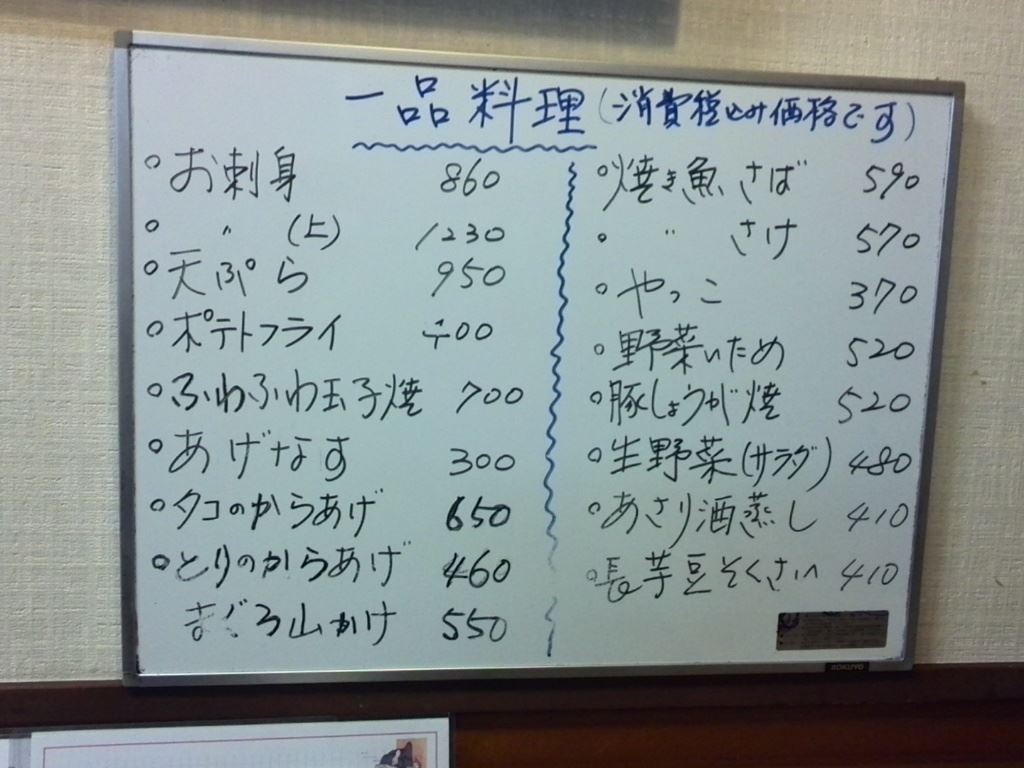 一品料理(消費税込み価格です)
○お刺身 860
○ 〃 (上) 1230
○天ぷら 950
○ポテトフライ 400
○ふわふわ玉子焼 700
○あげなす 300
○タコのからあげ 650
○とりのからあげ 460
まぐろ山かけ 550
○焼き魚 さば 590
○ 〃 さけ 570
○やっこ 370
○野菜いため 520
○豚しょうが焼 520
○生野菜(サラダ) 480
○あさり酒蒸し 410
○長芋豆そくさい 410
KOKUYO